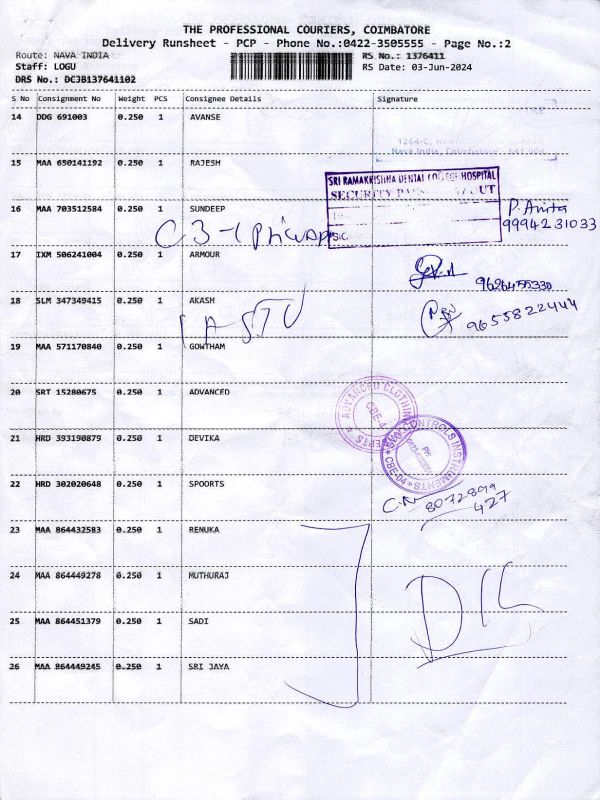 THE PROFESSIONAL COURIERS, COIMBATORE
Delivery Runsheet - PCP - Phone No.:0422-3505555 - Page No.:2
Route: NAVA INDIA
Staff: LOGU
DRS No.: DCJB137641102
RS No.: 1376411
RS Date: 03-Jun-2024
S No Consignment No Weight PCS Consignee Details Signature
14 DDG 691003 0.250 1 AVANSE
1264-C,
Nava India, Coimbatore 641 004
15 MAA 650141192 0.250 1 RAJESH
SRI RAMAKRISHNA DENTAL COLLEGE HOSPITAL
SECURITY OUT
16 MAA 703512584 0.250 1 SUNDEEP
P. Anita
9994231033
17 IXM 506241004 0.250 1 ARMOUR
9626455330
18 SLM 347349415 0.250 1 AKASH
9655822444
19 MAA 571170840 0.250 1 GOWTHAM
20 SRT 15280675 0.250 1 ADVANCED
ADVANCED CLOTHING
CBE-4
21 HRD 393190879 0.250 1 DEVIKA
CONTROLS INSTRUMENTS
CBE-04
PH:
22 HRD 302020648 0.250 1 SPOORTS
8072899
427
23 MAA 864432583 0.250 1 RENUKA
24 MAA 864449278 0.250 1 MUTHURAJ
25 MAA 864451379 0.250 1 SADI
26 MAA 864449245 0.250 1 SRI JAYA